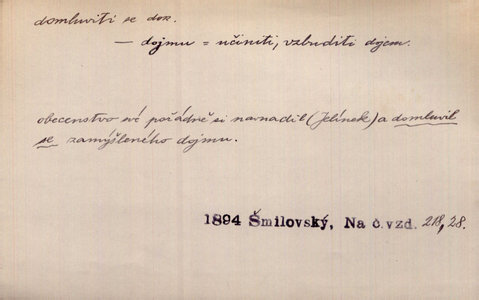 domluviti se dok.
— dojmu = učiniti, vzbuditi dojem.
obecenstvo své pořádně si navnadil (Jelínek) a domluvil
se zamýšleného dojmu.
1894 Šmilovský, Na č.vzd. 218, 28.